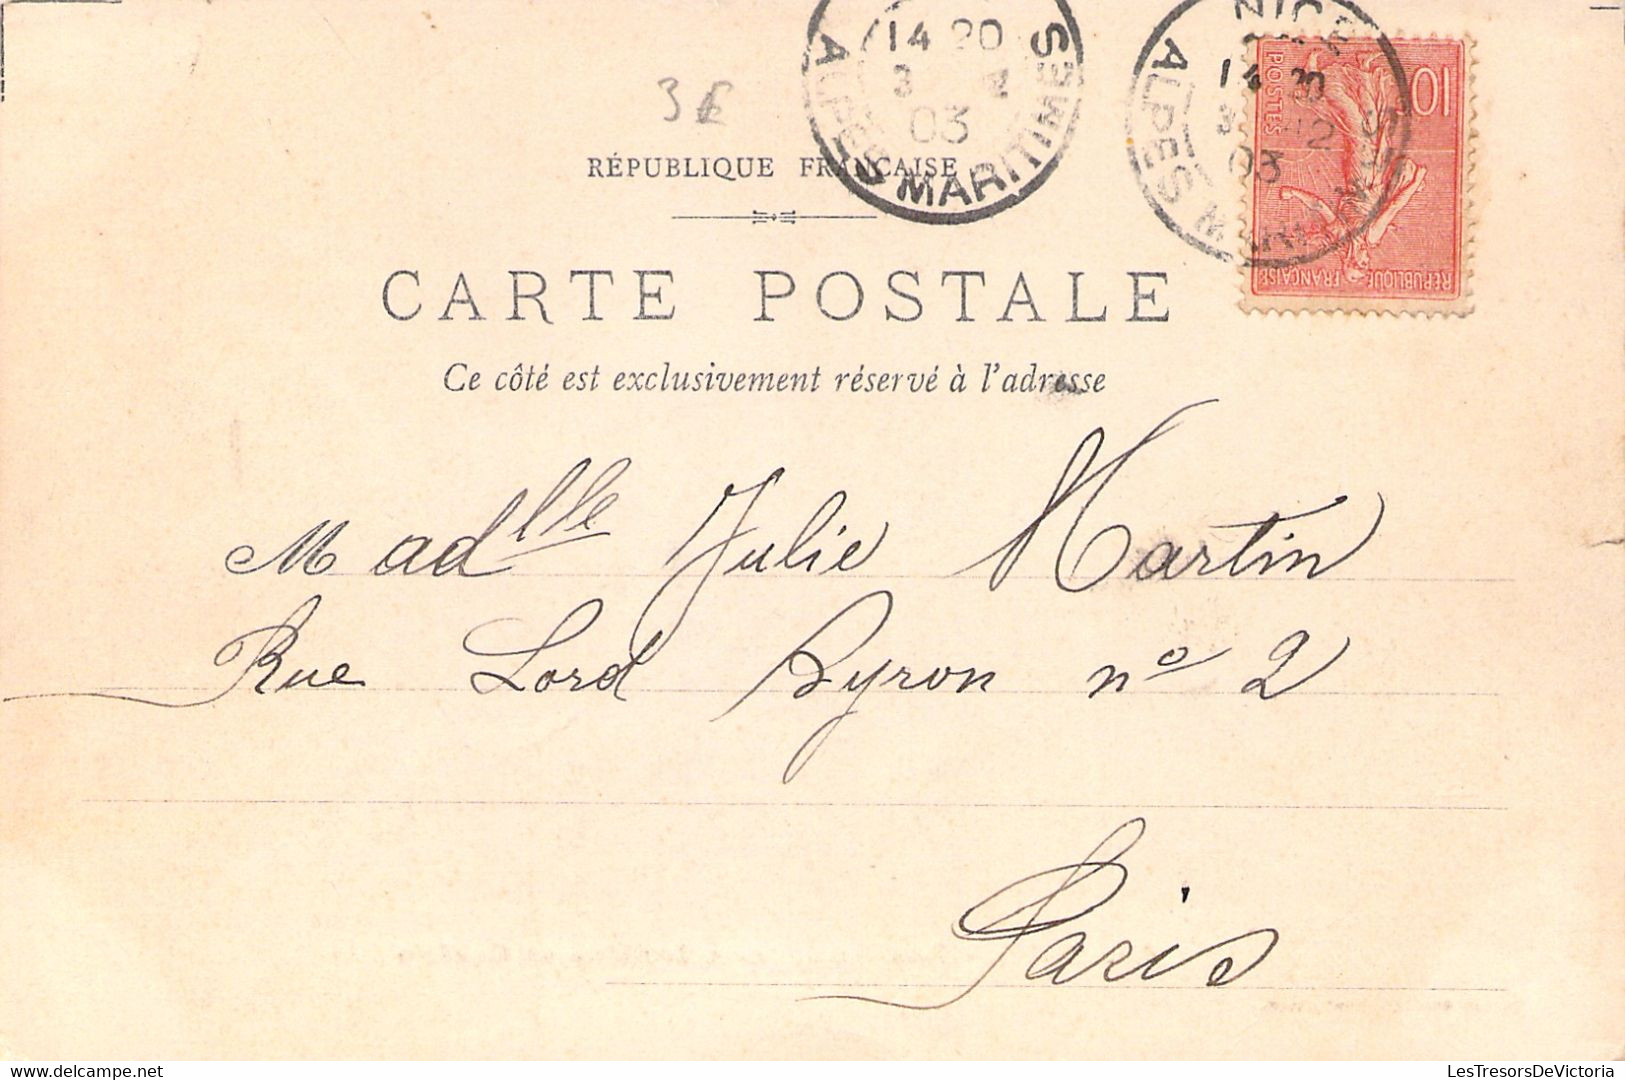 NICE
14 20
3 12
03
ALPES MARITIMES
14 20
3
03
ALPES MARITIMES
10
POSTES
RÉPUBLIQUE FRANÇAISE
3€
RÉPUBLIQUE FRANÇAISE
CARTE POSTALE
Ce côté est exclusivement réservé à l'adresse
Madlle Julie Martin
Rue Lord Byron nº 2
Paris
LesTresorsDeVictoria